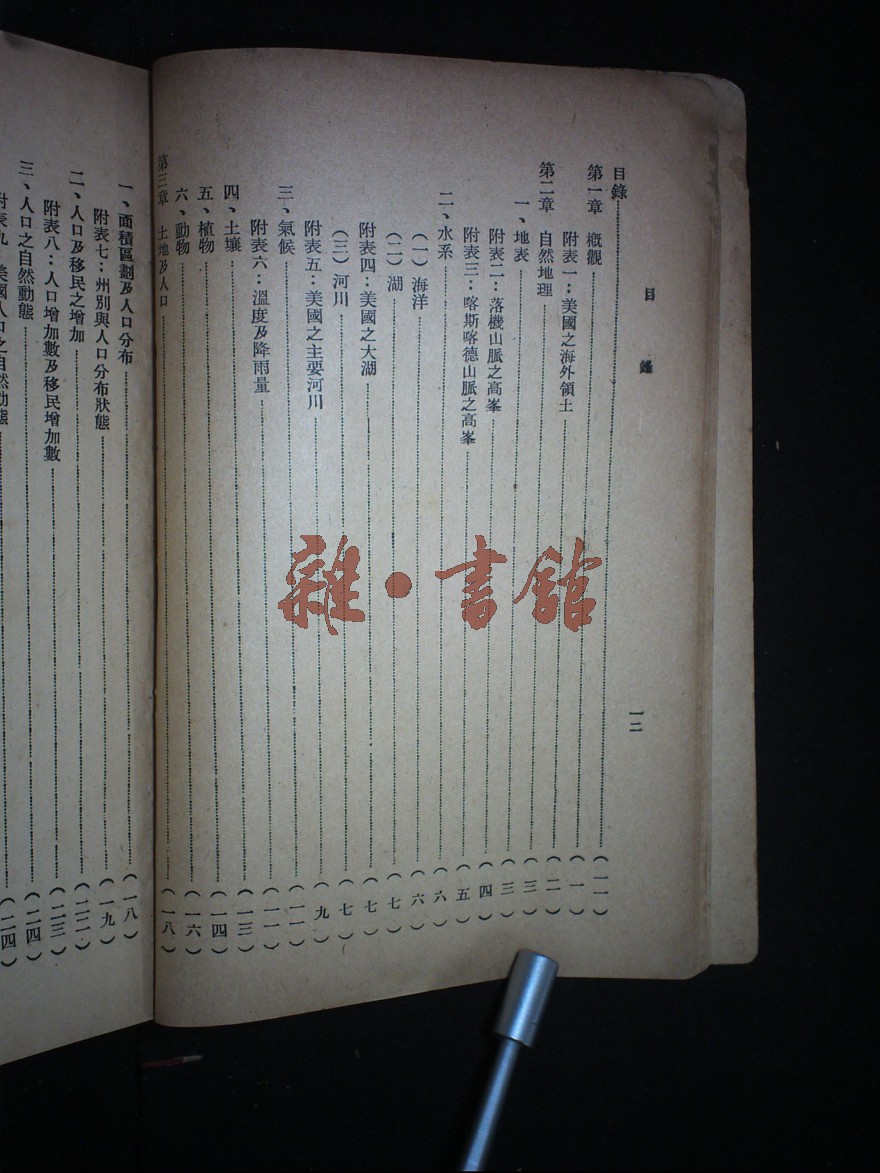 目錄
一二
目錄……(一一)
第一章 概觀……(一)
附表一：美國之海外領土……(二)
第二章 自然地理……(三)
一、地表……(三)
附表二：落機山脈之高峯……(四)
附表三：喀斯喀德山脈之高峯……(五)
二、水系……(六)
(一)海洋……(六)
(二)湖……(七)
附表四：美國之大湖……(七)
(三)河川……(七)
附表五：美國之主要河川……(九)
三、氣候……(一一)
附表六：溫度及降雨量……(一一)
四、土壤……(一三)
五、植物……(一四)
六、動物……(一六)
第三章 土地及人口……(一八)
一、面積區劃及人口分布……(一八)
附表七：州別與人口分布狀態……(一九)
二、人口及移民之增加……(二二)
附表八：人口增加數及移民增加數……(二三)
三、人口之自然動態……(二四)
附表九：美國人口之自然動態……(二四)
雜·書館